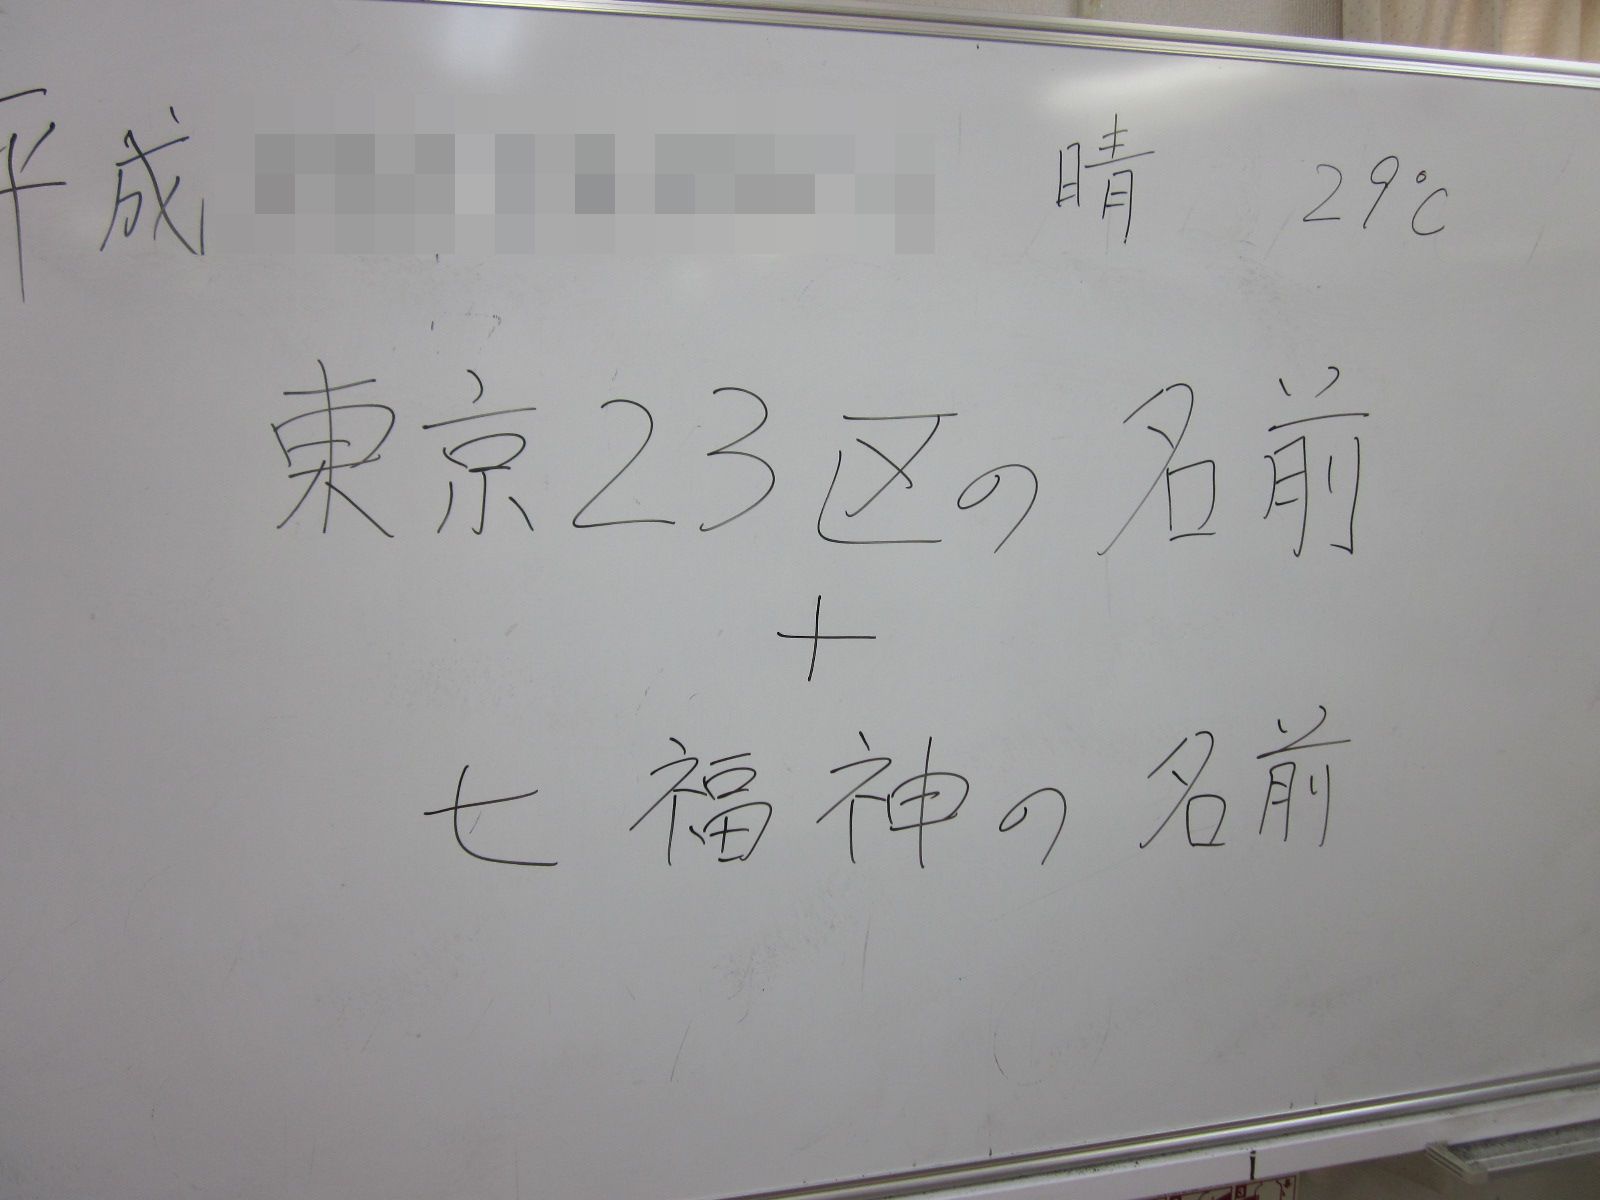 平成 晴 29℃
東京23区の名前
+
七福神の名前